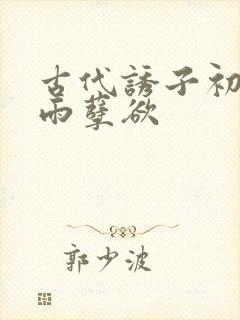 古代誘子初
雨孽欲
郭少波